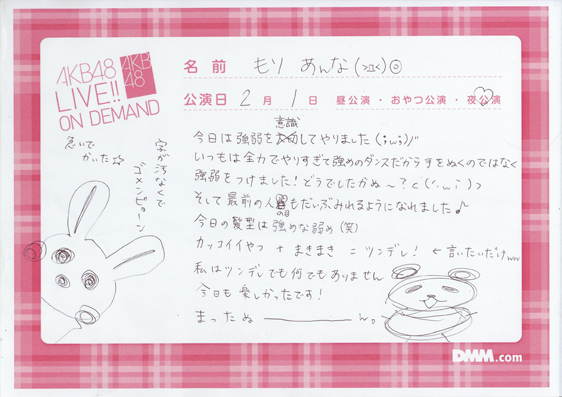 AKB48
LIVE!!
ON DEMAND
AKB
48
名前 もり あんな(>ユ<)◎
公演日 2月1日 昼公演・おやつ公演・夜公演
意識
今日は強弱を してやりました(;ω;)/
いつもは全力でやりすぎて強めのダンスだから手をぬくのではなく
強弱をつけました!どうでしたかぬ〜?c('・ω・`)っ
そして最前の人 もだいぶみれるようになれました♪
の目
今日の髪型は強めな弱め(笑)
カッコイイやつ + まきまき = ツンデレ! ←言いたいだけww
私はツンデレでも何でもありません
今日も楽しかったです!
まったぬ――――ん。
急いで
かいた☆
字が汚なくて
ゴメンピーン
DMM.com